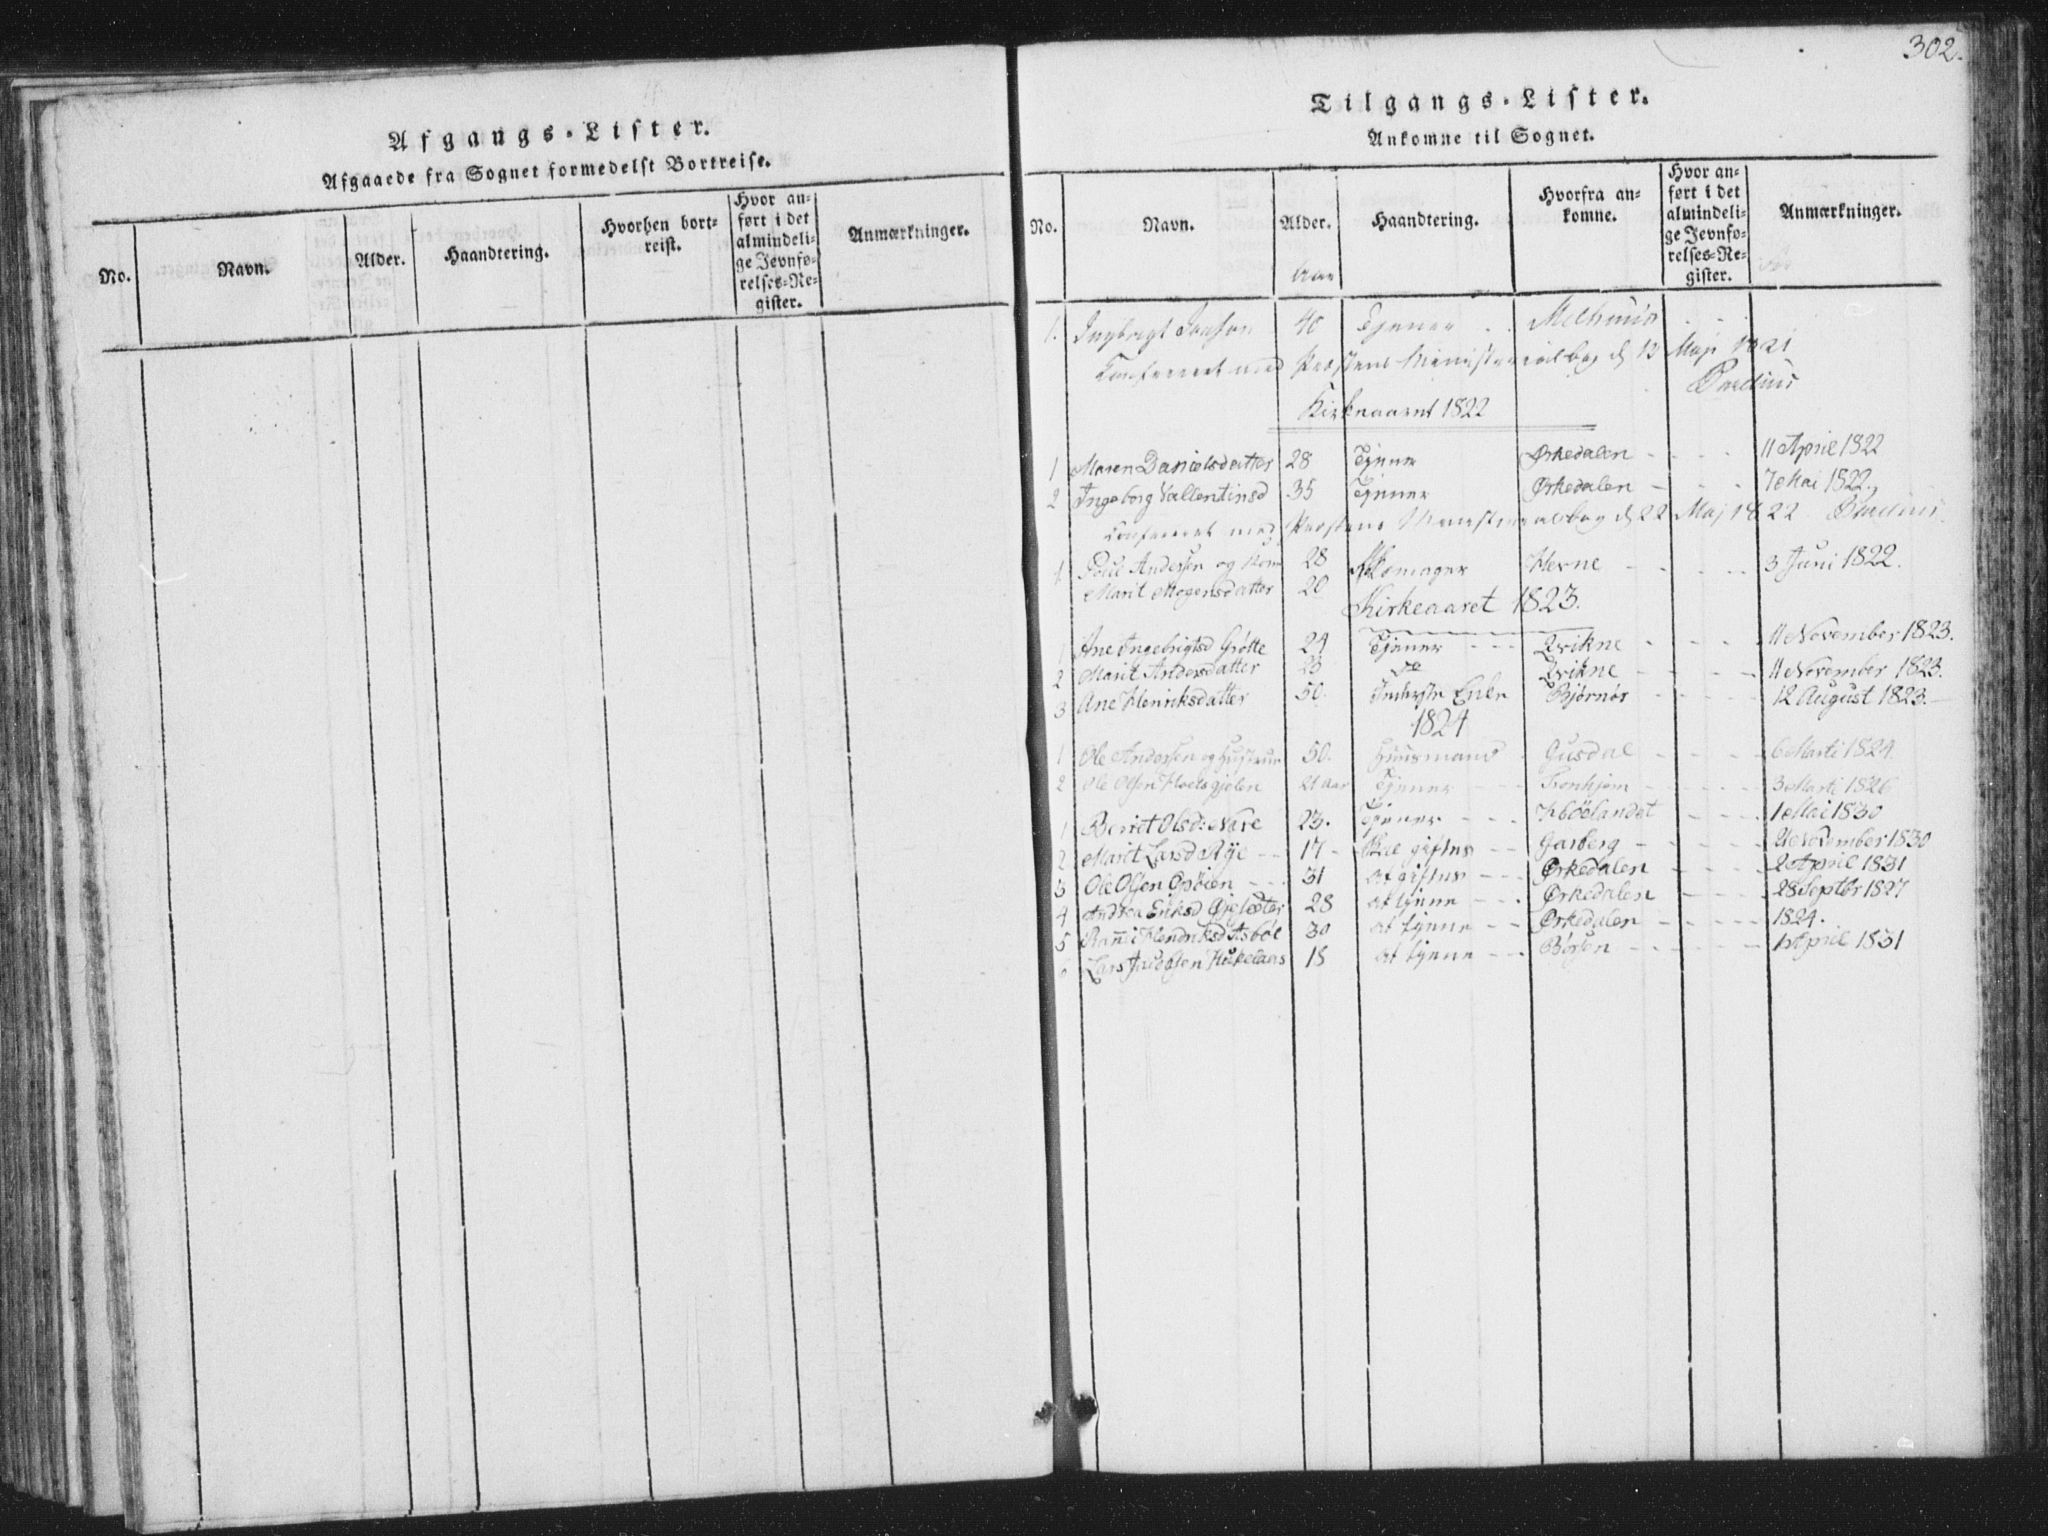 Afgangs-Lister.
Afgaaede fra Sognet formedelst Bortreise.
No.
Navn.
Alder.
Haandtering.
Hvorhen bort-
reist.
Hvor an-
ført i det
almindeli-
ge Jevnfø-
relses-Re-
gister.
Anmærkninger.
302.
Tilgangs-Lister.
Ankomne til Sognet.
No.
Navn.
Alder.
Haandtering.
Hvorfra an-
komne.
Hvor an-
ført i det
almindeli-
ge Jevnfø-
relses-Re-
gister.
Anmærkninger.
Aar
1. Ingbrigt 40 Tjener Melhuus
Confereret med Provstens Ministerialbog d 13 Maji 1821
Kirkeaaret 1822
1 Maren Danielsdatter 28 Tjener Ørkedalen 11 April 1822
2 Ingeborg Vallentinsd 35 Tjener Ørkedalen 7 Mai 1822.
Confereret med Provstens Ministerialbog d 22 Maj 1822
1 Poul Andersen og Kone 28 Skomager Herne 3 Juni 1822.
Marit Mogensdatter 20
Kirkeaaret 1823.
1 Ane Ingebrigtsd Grøtte 24 Tjener Qvikne 11 November 1823.
2 Marit Andersdatter 23 do Qvikne 11 November 1823.
3 Ane Henriksdatter 50. Inderste Enke Bjørnør 12 August 1823.
1824
1 Ole Andersen og Hustrue 50. Huusmand Gusdal 6 Marti 1824.
2 Ole Olsen 21 aar Tjener Tronhjem 3 Marti 1826
1 Berret Olsd: 23. Tjener 1 Mai 1830
2 Marit Larsd Rye 17 Skal giftes Garberg 2 November 1830
3 Ole Olsen Opøien 31 at giftes Ørkedalen 2 April 1831
4 Andrea Eriksd 28 at tjene Ørkedalen 28 Septbr 1827
5 Ranni Hendriksd Asbøl 30 at tjene Ørkedalen 1824.
6 Lars 18 at tjene Børsen 1 April 1831